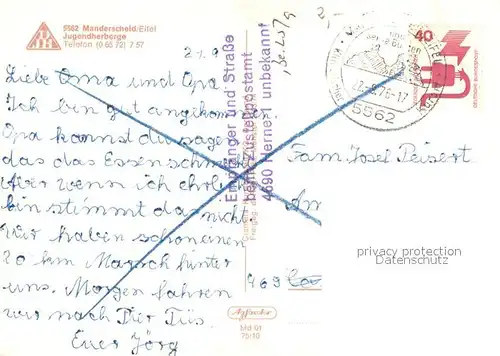 5562 Manderscheid/Eifel
Jugendherberge
Telefon (0 65 72) 7 57
Liebe Oma und Opa.
Ich bin gut angekommen
Opa kannst du sagen
das das Essen schmeckt
Aber wenn ich ehrlich
bin stimmt das nicht
Wir haben schon einen
20 km Marsch hinter
uns. Morgen fahren
wir nach Trier Tüs.
Euer Jörg
Empfänger und Straße
beim Zustellpostamt
4690 Herne 1 unbekannt
2,-
40
5562
Fam. Josef Peisert
An
469
privacy protection
Datenschutz
Md 01
75/10